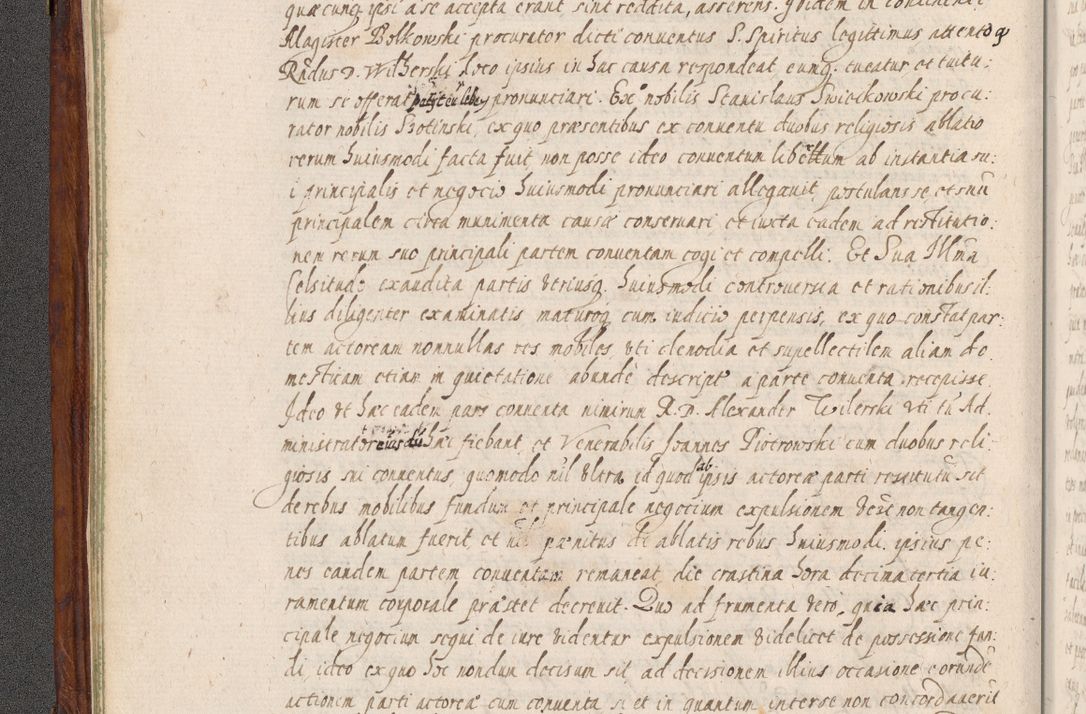 quæcunq ipsi a se accepta erant sint reddita, asserens. Ibidem in continenti
Magister Bolkowski procurator dicti conuentus S. Spiritus legittimus attento q
Rndus D. Wilherski loco ipsius in hac causa respondeat eumq tueatur et tuitu:
rum se offerat pronunciari. Ex nobilis Stanislaus Swiecikowski procu:
rator nobilis Szotinski, ex quo præsentibus ex conuentu duobus religiosis ablatio
rerum huiusmodi facta fuit non posse ideo conuentum libellum ab instantia su:
i principalis et negocio huiusmodi pronunciari allegauit postulans se et suũ
principalem circa munimenta causæ conseruari et iuxta eadem ad restitutio:
nem rerum suo principali partem conuentam cogi et compelli. Et Sua Illma
Celsitudo exaudita partis vtriusq huiusmodi controuersia et rationibus il:
lius diligenter examinatis maturoq cum iudicio perpensis, ex quo constat par:
tem actoream nonnullas res mobiles, vti clenodia et supellectilem aliam do
mesticam etiam in quietatione abunde descript a parte conuenta recepisse
Ideo vt hæc eadem pars conuenta nimirum R. D. Alexander Wilerski vti tũ Ad
ministrator hæc fiebant et Venerabilis Joannes Piotrowski cum duobus reli:
giosis sui conuentus, quomodo nil vltra id quod ab ipsis actoreæ parti restitutũ sit
de rebus mobilibus fundum et principale negocium expulsionem vere non tangen:
tibus ablatum fuerit, et nil pænitus de ablatis rebus huiusmodi, ipsius pe:
nes eandem partem conuentam remaneat die crastina hora decima tertia iu:
ramentum corporale præstet decreuit. Quo ad frumenta vero, quia hæc prin:
cipale negocium sequi de iure videntur expulsionem videlicet de possessione fun:
di, ideo ex quo hoc nondum decisum sit, ad decisionem illius occasione eorundẽ
actionem parti actoreæ cum conuenta si et in quantum inter se non concordauerit